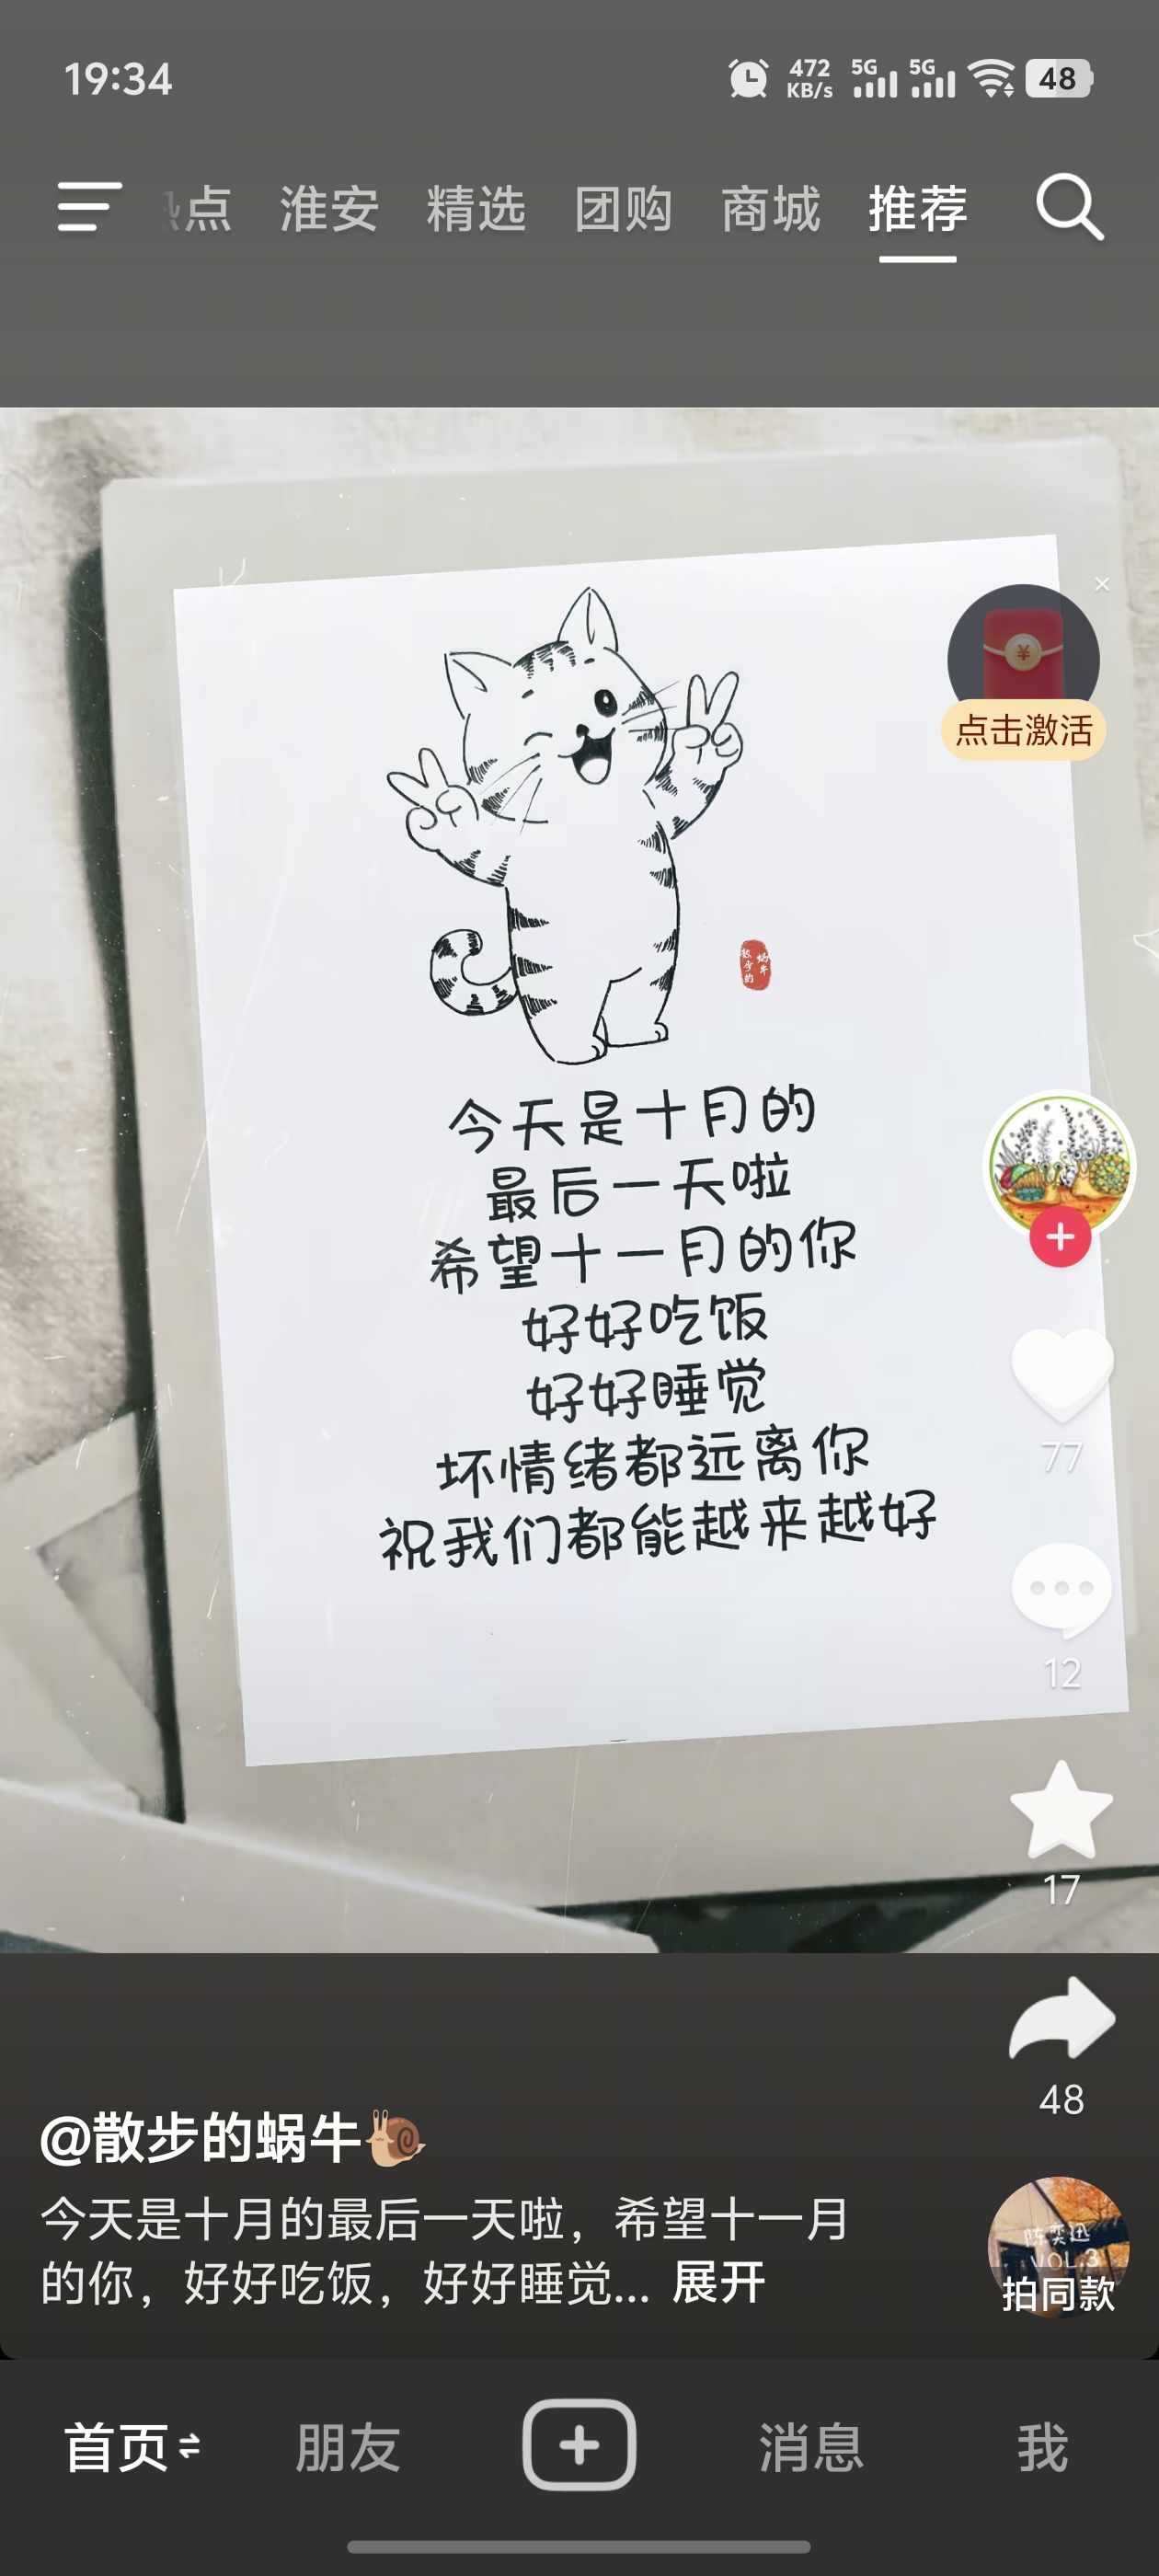 19:34
472
KB/s
5G
5G
48
点
淮安
精选
团购
商城
推荐
点击激活
今天是十月的
最后一天啦
希望十一月的你
好好吃饭
好好睡觉
坏情绪都远离你
祝我们都能越来越好
散步的
蜗牛
77
12
17
48
@散步的蜗牛
今天是十月的最后一天啦，希望十一月
的你，好好吃饭，好好睡觉... 展开
陈奕迅
VOL.3
拍同款
首页
朋友
消息
我